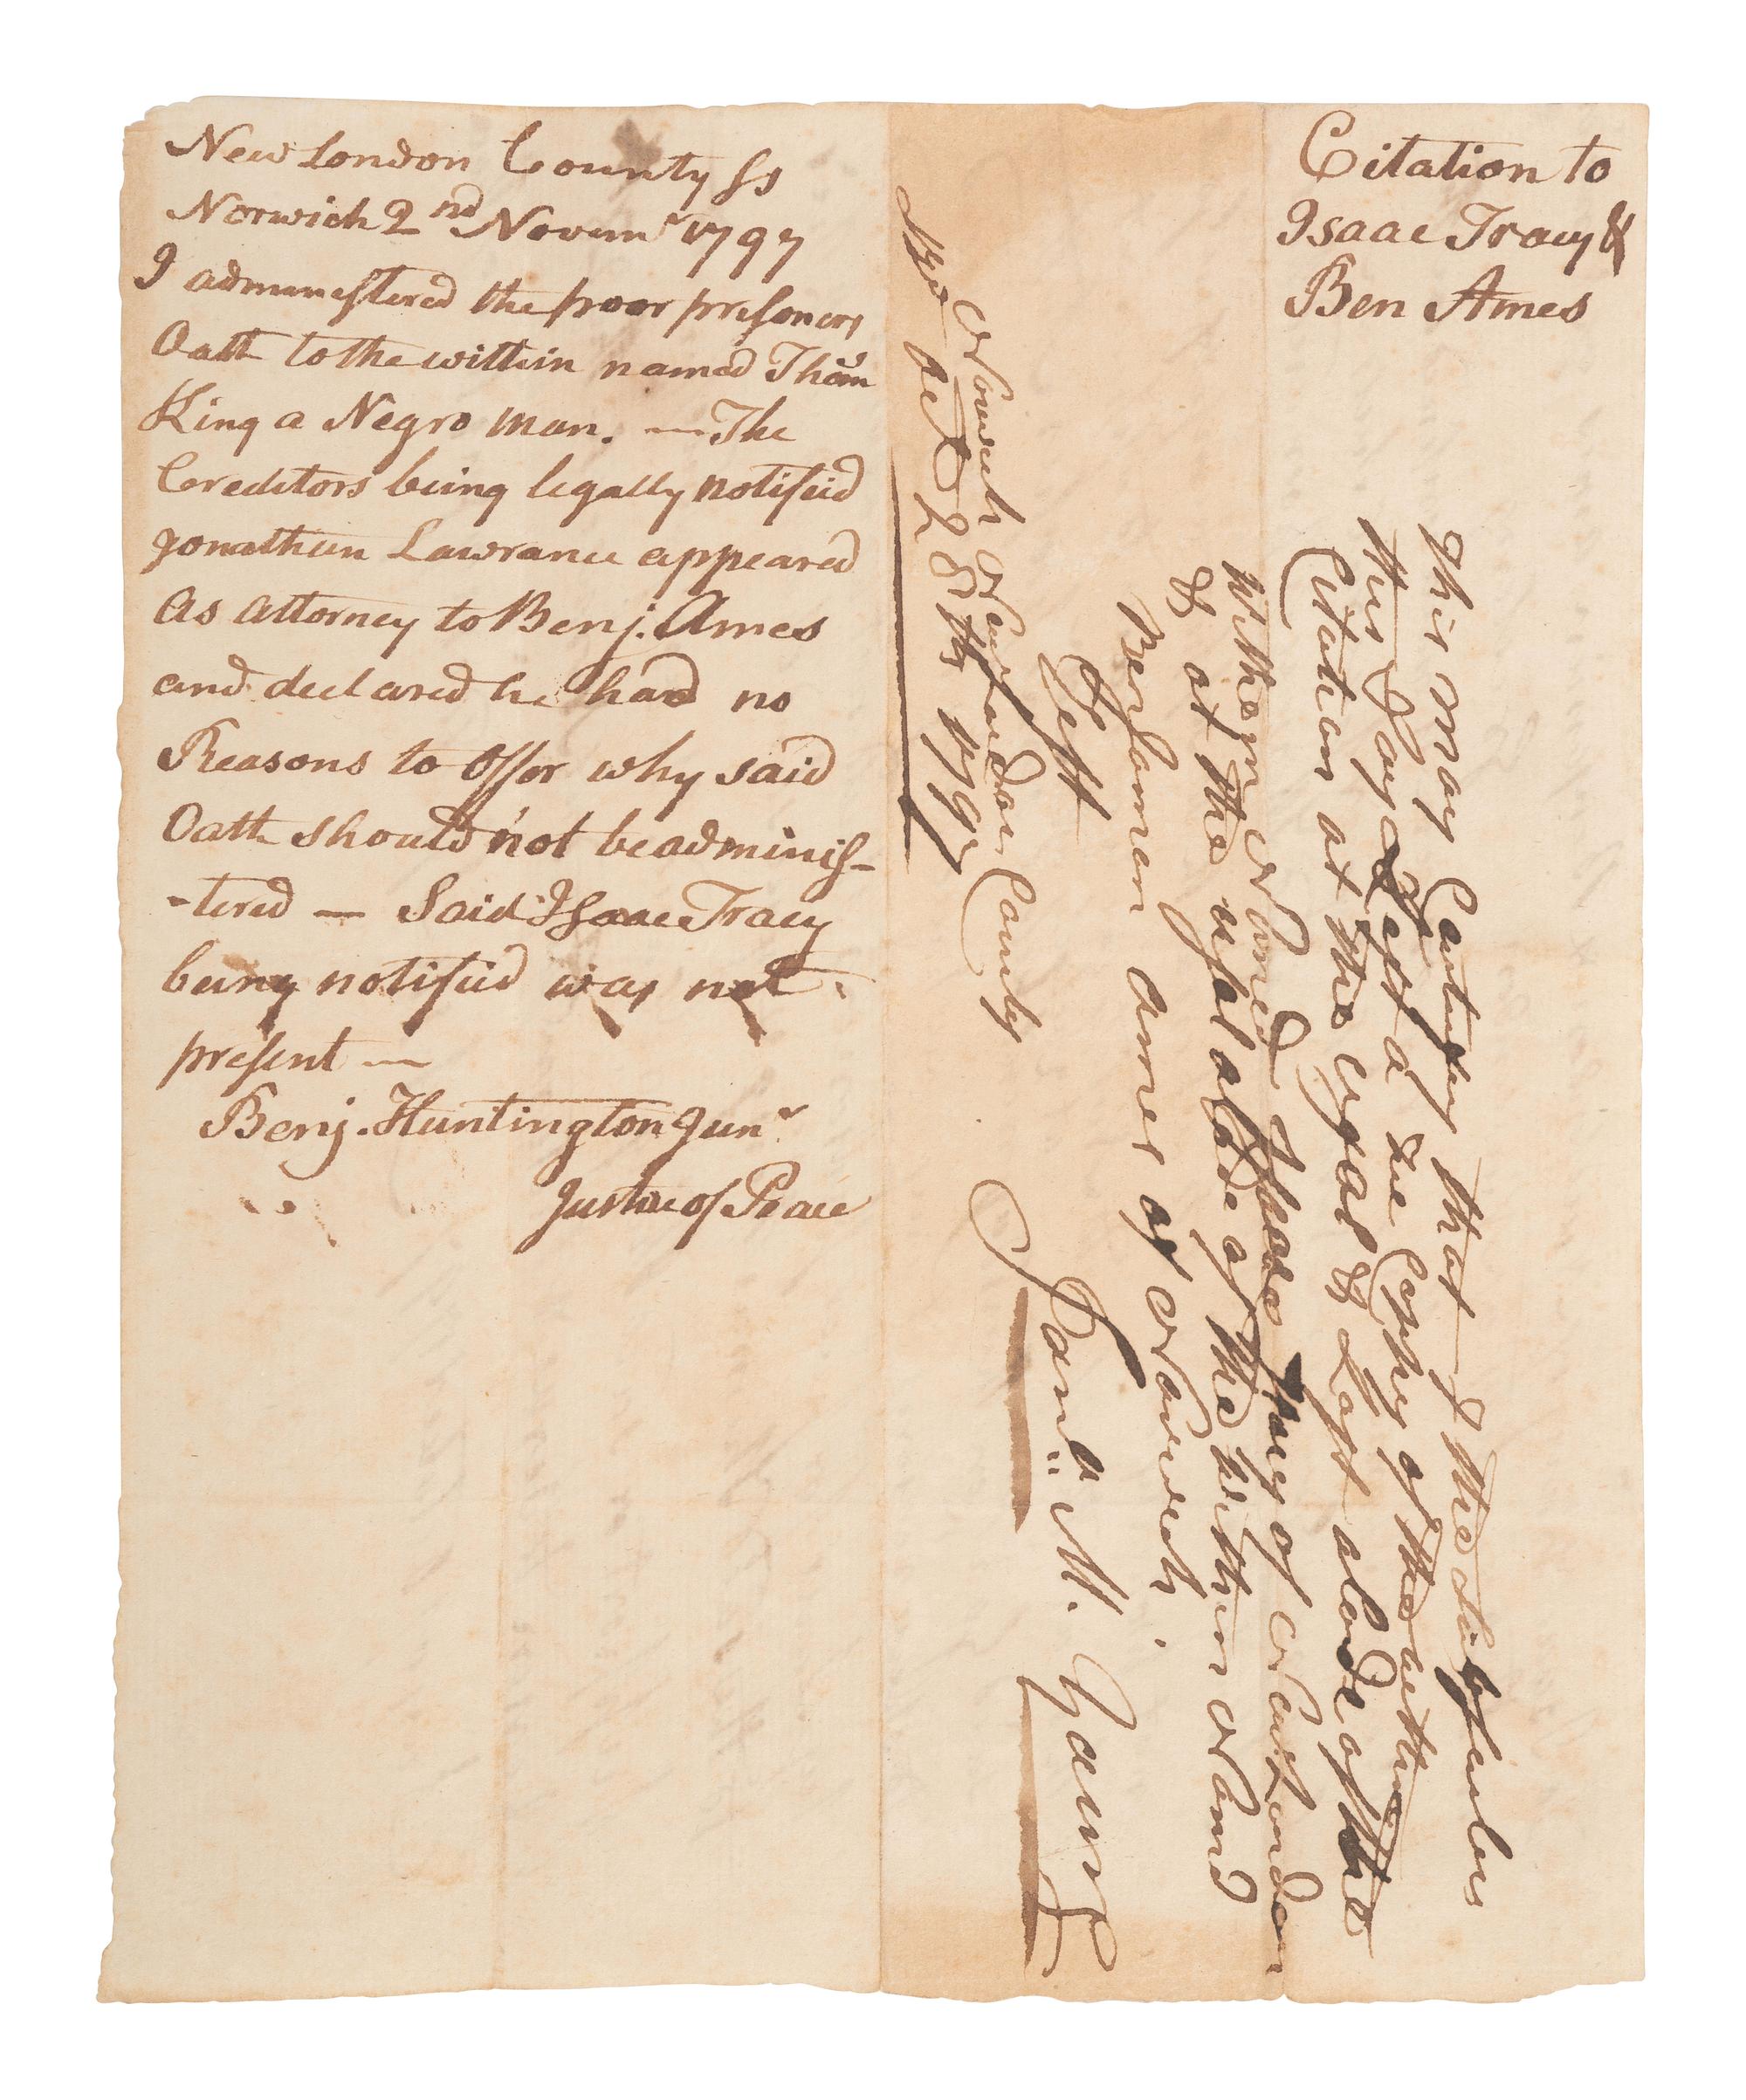 New London County ss
Norwich 2nd Novemr 1797
I admenestered the poor presoners
Oath to the within named Thom
King a Negro man. — The
Creditors being legally notifeid
Jonathan Lawrance appeared
As attorney to Benj. Ames
and declared he had no
Reasons to Offer why said
Oath should not be adminis-
-tered — Said Isaac Tracy
being notifeid was not
present —
Benj. Huntington Junr
Justice of Peace
Citation to
Isaac Tracy &
Ben Ames
This may Certefey that I the
this Day Left a true Coppy of the within
Citation at the Usual & Last abode of the
Within Named Isaac Tracy of New London
& at the usal abode of the within Named
Benjamen Ames of Norwich
Test
Janl. M. Young
Norwich New London County
Oct 28th 1797